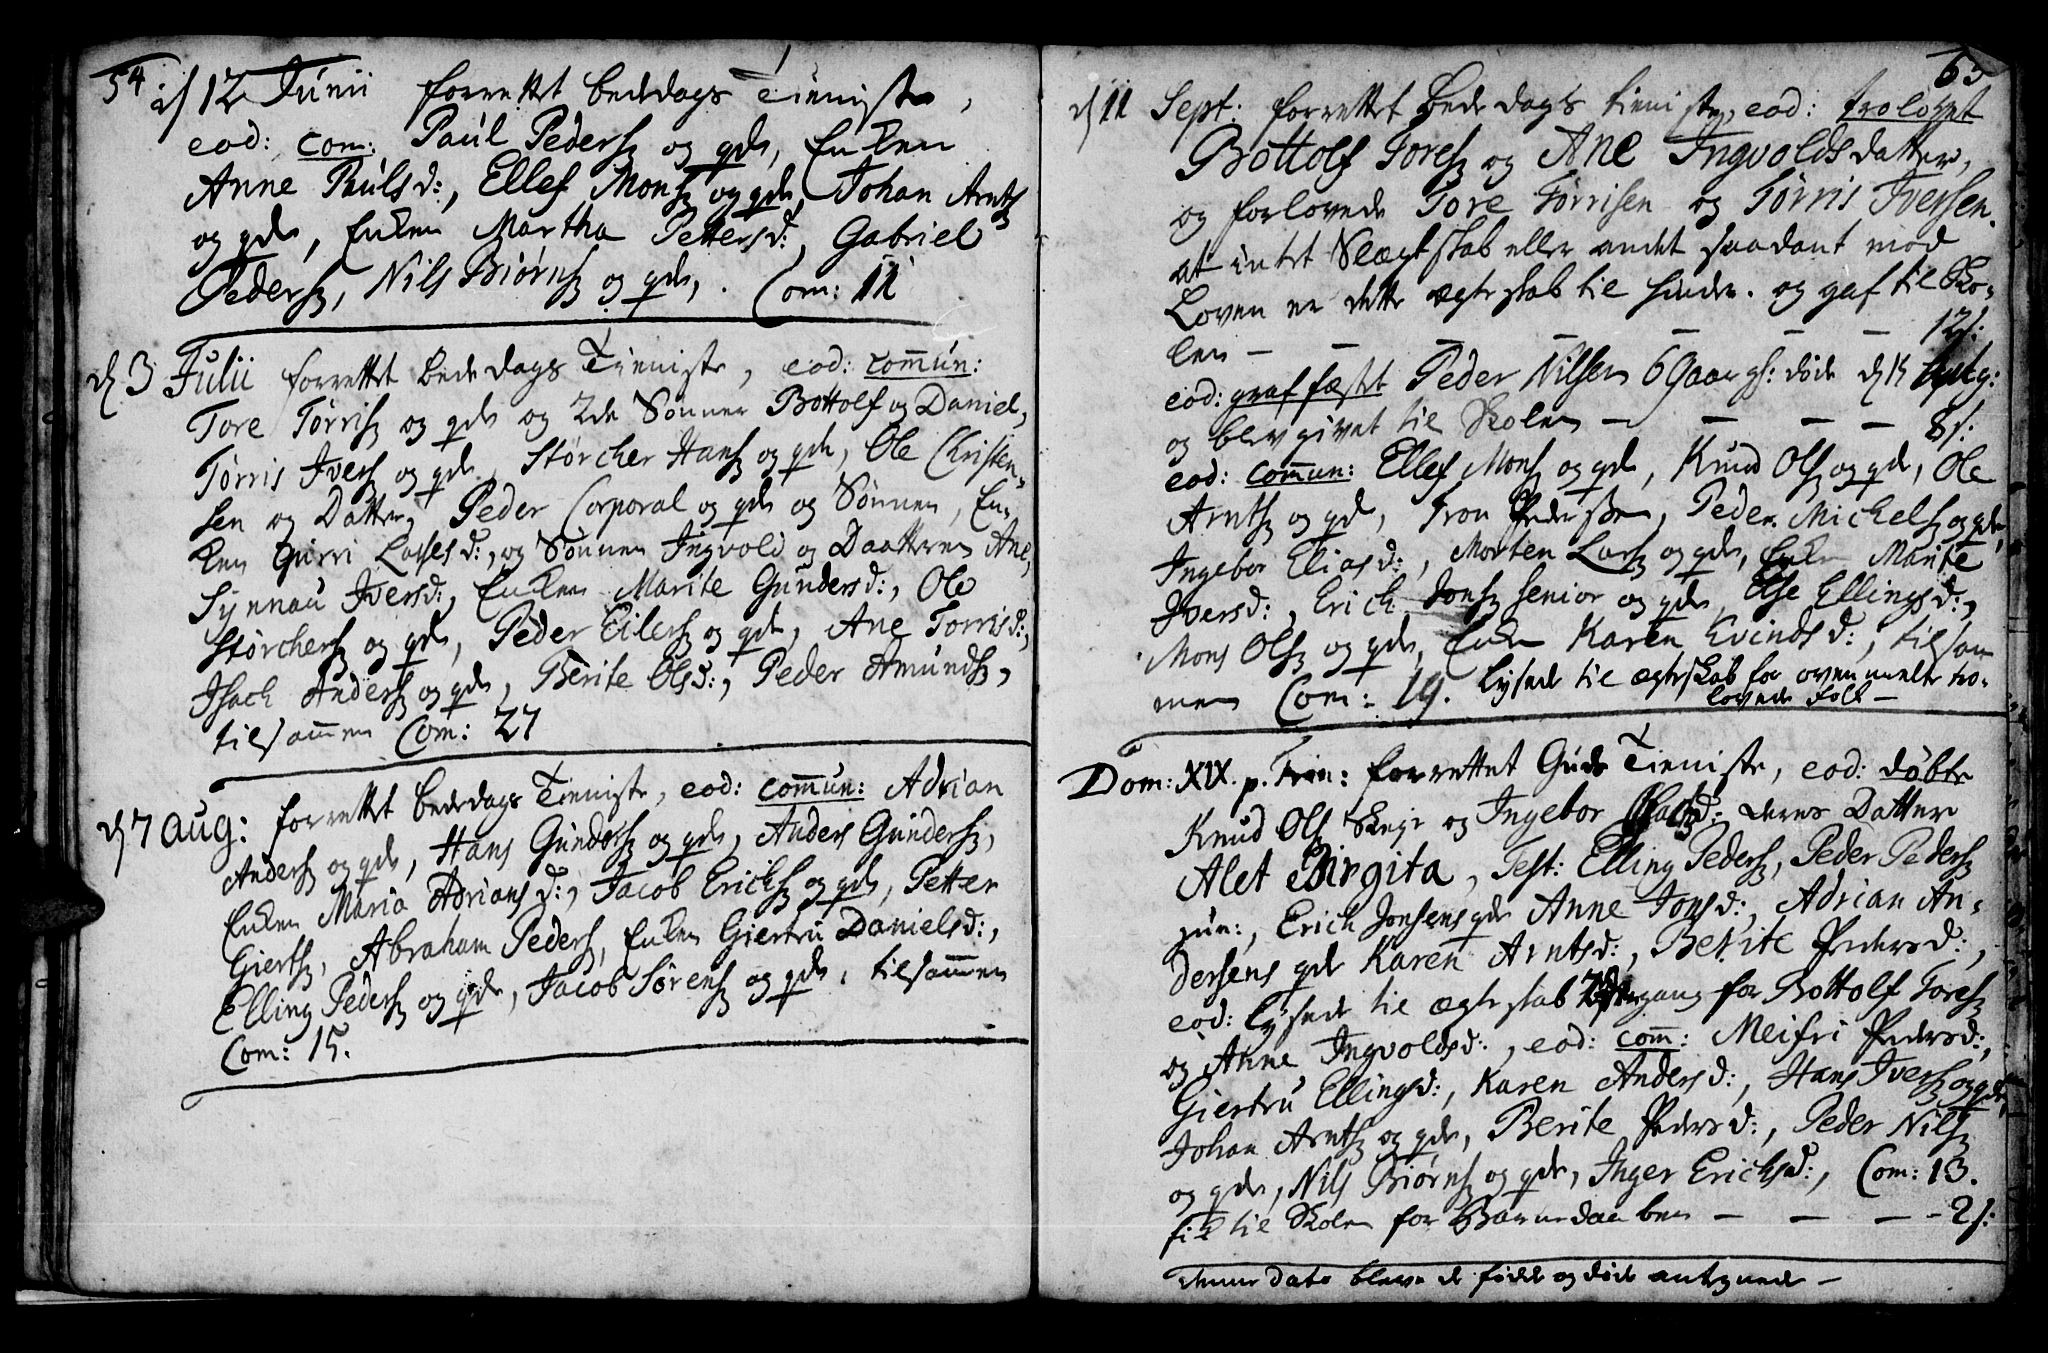 54
d 12 Junii forrettet bededags Tieniste,
eod: com: Paul Peders: og qde, Enken
Anne Paulsd:, Ellef Mons: og qde, Johan Arnts:
og qde, Enken Martha Pettersd:, Gabriel
Peders:, Nils Biørns: og qde, . Com: 11
d 3 Julii forrettet bededags Tieniste, eod: commun:
Tore Tørris: og qde og 2de Sønner Bottolf og Daniel,
Tørris Ivers: og qde, Størcher Hans: og qde, Ole Christen-
sen og Datter, Peder Corporal og qde og Sønnen, En-
ken Gurri Lassesd:, og Sønnen Ingvold og Daatteren Ane,
Synnau Iversd:, Enken Marite Gundersd:, Ole
Størchers: og qde, Peder Eilers: og qde, Ane Torrisd:,
Isach Anders: og qde, Berite Olsd:, Peder Amunds:,
tilsammen Com: 27
d 7 Aug: forrettet bededags Tieniste, eod: commun: Adrian
Anders: og qde, Hans Gunders: og qde, Anders Gunders:,
Enken Maria Adriansd:, Jacob Erichs: og qde, Petter
Gierts:, Abraham Peders:, Enken Giertru Danielsd:,
Elling Peders: og qde, Jacob Sørens: og qde, tilsammen
Com: 15.
65
d 11 Sept. forrettet Bededags tieniste, eod: trolovet
Bottolf Tores: og Ane Ingvoldsdatter,
og forlovede Tore Tørrisen og Tørris Iversen.
at intet Slægtskab eller andet saadant mod
Loven er dette ægteskab til hinder. og gaf til Sko-
len - - - - - - 12 s:
eod: graffæstet Peder Nilsen 69 aar gl: døde d 15
og blev givet til Skolen - - - - 8 s:
eod: commun: Ellef Mons: og qde, Knud Ols: og qde, Ole
Arnts: og qd, Tron Pedersen, Peder Michels: og qde,
Ingebor Eliasd:, Morten Lars: og qde, Enken Marite
Iversd:, Erich Jons: senior og qde, Else Ellingsd:,
Mons Ols: og qde, Enken Karen Evindsd:, tilsam
men Com: 19. Lysede til ægteskab for ovenmelte tro-
lovede folk -
Dom: XIX. p. Trin: forrettet Guds Tieniste, eod: døbte
Knud Ols: og Ingebor deres Datter
Alet Birgita, Test: Elling Peders:, Peder Peders:
jun:, Erich Jonsens qde Anne Jonsd:, Adrian An-
dersens qde Karen Arntsd:, Berite Pedersd:,
eod: lysede til ægteskab 2den gang for Bottolf Tores:
og Anne Ingvoldsd:, eod: com: Meifri Pedersd:,
Giertru Ellingsd:, Karen Andersd:, Hans Ivers: og qde,
Johan Arnts: og qde, Berite Pedersd:, Peder Nils:
og qde, Nils Biørns: og qde, Inger Erichsd:, Com: 13.
fik til Skolen for Barnedaaben - - - - 2 s:
denne Dato bleve de fødde og døde antegnede -